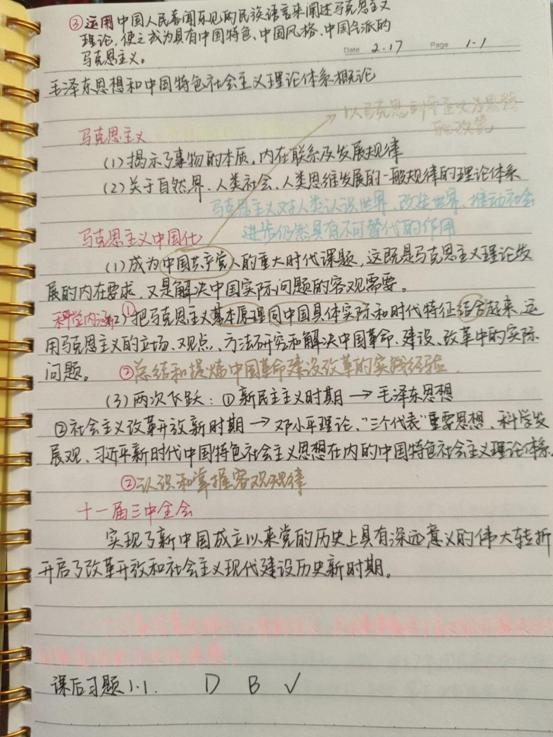 ③运用中国人民喜闻乐见的民族语言来阐述马克思主义
理论,使之成为具有中国特色、中国风格、中国气派的
马克思主义。
Date 2.17 Page 1.1
毛泽东思想和中国特色社会主义理论体系概论
马克思主义
(1)揭示了事物的本质,内在联系及发展规律
(2)关于自然界、人类社会、人类思维发展的一般规律的理论体系
马克思主义对人类认识世界、改造世界、推动社会
进步仍然具有不可替代的作用
马克思主义中国化
(1)成为中国共产党人的重大时代课题,这既是马克思主义理论发
展的内在要求,又是解决中国实际问题的客观需要。
科学内涵(2)①把马克思主义基本原理同中国具体实际和时代特征结合起来,运
用马克思主义的立场、观点、方法研究和解决中国革命、建设、改革中的实际
问题。②总结和提炼中国革命建设改革的实践经验。
(3)两次飞跃:①新民主主义时期→毛泽东思想
②社会主义改革开放新时期→邓小平理论、"三个代表"重要思想、科学发
展观、习近平新时代中国特色社会主义思想在内的中国特色社会主义理论体系
②认识和掌握客观规律
十一届三中全会
实现了新中国成立以来党的历史上具有深远意义的伟大转折
开启了改革开放和社会主义现代建设历史新时期。
课后习题1.1. D B √